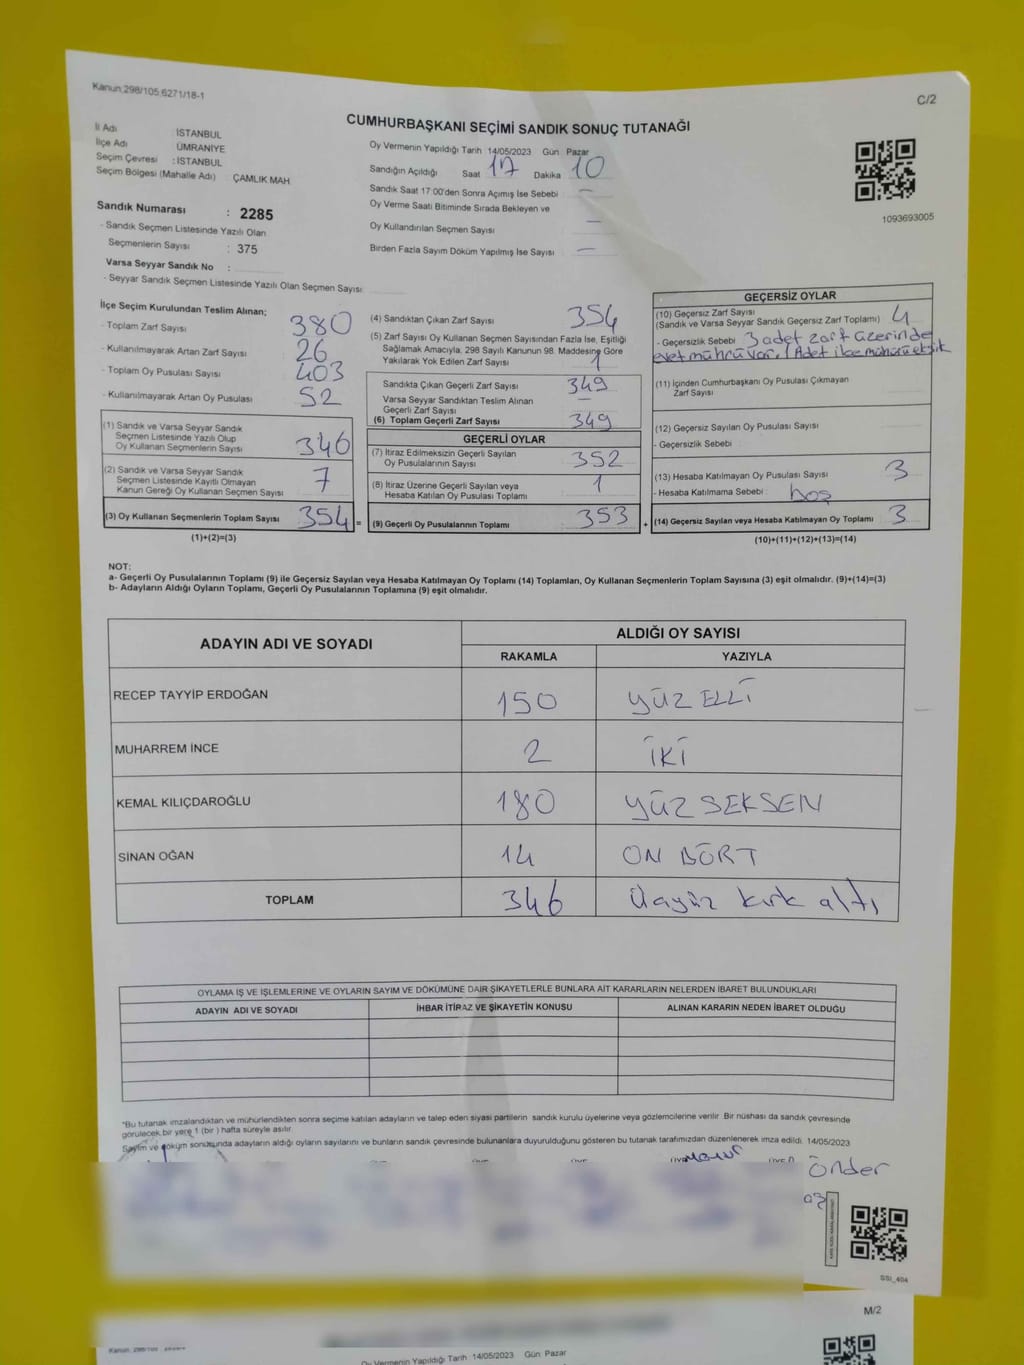 Kanun:298/105,6271/18-1
C/2
CUMHURBAŞKANI SEÇİMİ SANDIK SONUÇ TUTANAĞI
İl Adı İSTANBUL
İlçe Adı ÜMRANİYE
Seçim Çevresi : İSTANBUL
Seçim Bölgesi (Mahalle Adı) ÇAMLIK MAH.
Oy Vermenin Yapıldığı Tarih 14/05/2023 Gün Pazar
Sandığın Açıldığı Saat 17 Dakika 10
Sandık Saat 17:00'den Sonra Açımış İse Sebebi —
Oy Verme Saati Bitiminde Sırada Bekleyen ve
Oy Kullandırılan Seçmen Sayısı —
Birden Fazla Sayım Döküm Yapılmış İse Sayısı —
1093693005
Sandık Numarası : 2285
- Sandık Seçmen Listesinde Yazılı Olan
Seçmenlerin Sayısı : 375
Varsa Seyyar Sandık No :
- Seyyar Sandık Seçmen Listesinde Yazılı Olan Seçmen Sayısı
İlçe Seçim Kurulundan Teslim Alınan;
- Toplam Zarf Sayısı 380
- Kullanılmayarak Artan Zarf Sayısı 26
- Toplam Oy Pusulası Sayısı 403
- Kullanılmayarak Artan Oy Pusulası 52
(1) Sandık ve Varsa Seyyar Sandık
Seçmen Listesinde Yazılı Olup
Oy Kullanan Seçmenlerin Sayısı 346
(2) Sandık ve Varsa Seyyar Sandık
Seçmen Listesinde Kayıtlı Olmayan
Kanun Gereği Oy Kullanan Seçmen Sayısı 7
(3) Oy Kullanan Seçmenlerin Toplam Sayısı 354 =
(1)+(2)=(3)
(4) Sandıktan Çıkan Zarf Sayısı 354
(5) Zarf Sayısı Oy Kullanan Seçmen Sayısından Fazla İse, Eşitliği
Sağlamak Amacıyla, 298 Sayılı Kanunun 98. Maddesine Göre
Yakılarak Yok Edilen Zarf Sayısı 1
Sandıkta Çıkan Geçerli Zarf Sayısı 349
Varsa Seyyar Sandıktan Teslim Alınan —
Geçerli Zarf Sayısı
(6) Toplam Geçerli Zarf Sayısı 349
GEÇERLİ OYLAR
(7) İtiraz Edilmeksizin Geçerli Sayılan
Oy Pusulalarının Sayısı 352
(8) İtiraz Üzerine Geçerli Sayılan veya
Hesaba Katılan Oy Pusulası Toplamı 1
(9) Geçerli Oy Pusulalarının Toplamı 353 +
GEÇERSİZ OYLAR
(10) Geçersiz Zarf Sayısı
(Sandık ve Varsa Seyyar Sandık Geçersiz Zarf Toplamı) 4
- Geçersizlik Sebebi 3 adet zarf üzerinde
evet mührü var. 1 Adet ilçe mühürü eksik
(11) İçinden Cumhurbaşkanı Oy Pusulası Çıkmayan
Zarf Sayısı
(12) Geçersiz Sayılan Oy Pusulası Sayısı
- Geçersizlik Sebebi
(13) Hesaba Katılmayan Oy Pusulası Sayısı 3
- Hesaba Katılmama Sebebi : boş
(14) Geçersiz Sayılan veya Hesaba Katılmayan Oy Toplamı 3
(10)+(11)+(12)+(13)=(14)
NOT:
a- Geçerli Oy Pusulalarının Toplamı (9) ile Geçersiz Sayılan veya Hesaba Katılmayan Oy Toplamı (14) Toplamları, Oy Kullanan Seçmenlerin Toplam Sayısına (3) eşit olmalıdır. (9)+(14)=(3)
b- Adayların Aldığı Oyların Toplamı, Geçerli Oy Pusulalarının Toplamına (9) eşit olmalıdır.
ADAYIN ADI VE SOYADI ALDIĞI OY SAYISI
RAKAMLA YAZIYLA
RECEP TAYYİP ERDOĞAN 150 YÜZ ELLİ
MUHARREM İNCE 2 İKİ
KEMAL KILIÇDAROĞLU 180 YÜZ SEKSEN
SİNAN OĞAN 14 ON DÖRT
TOPLAM 346 Üçyüz kırk altı
OYLAMA İŞ VE İŞLEMLERİNE VE OYLARIN SAYIM VE DÖKÜMÜNE DAİR ŞİKAYETLERLE BUNLARA AİT KARARLARIN NELERDEN İBARET BULUNDUKLARI
ADAYIN ADI VE SOYADI İHBAR İTİRAZ VE ŞİKAYETİN KONUSU ALINAN KARARIN NEDEN İBARET OLDUĞU
"Bu tutanak imzalandıktan ve mühürlendikten sonra seçime katılan adayların ve talep eden siyasi partilerin sandık kurulu üyelerine veya gözlemcilerine verilir. Bir nüshası da sandık çevresinde
görülecek bir yere 1 (bir ) hafta süreyle asılır.
Sayım ve döküm sonusunda adayların aldığı oyların sayılarını ve bunların sandık çevresinde bulunanlara duyurulduğunu gösteren bu tutanak tarafımızdan düzenlenerek imza edildi. 14/05/2023
Önder
SSI_404
M/2
Oy Vermenin Yapıldığı Tarih 14/05/2023 Gün Pazar